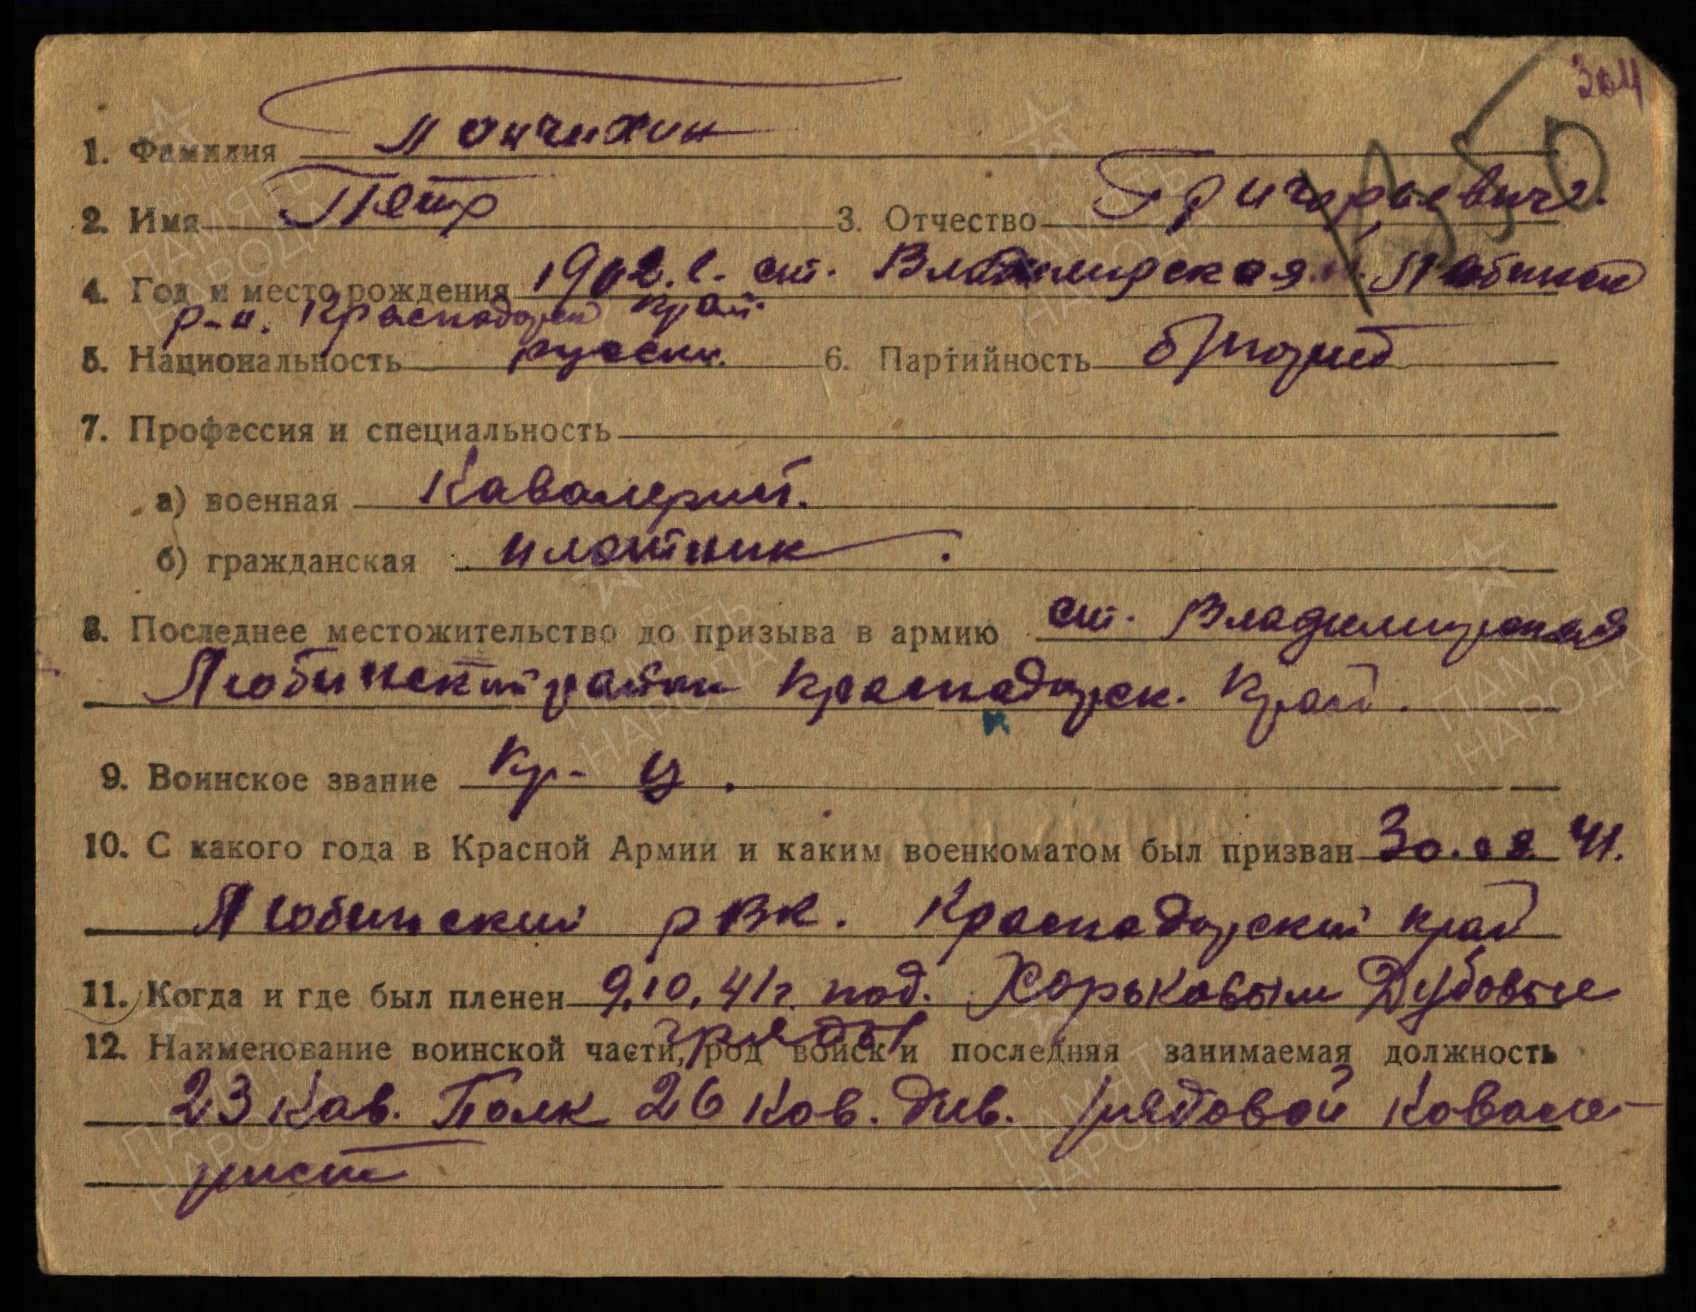 304
1. Фамилия
2. Имя Петр 3. Отчество Григорьевич
4. Год и место рождения 1902 г. ст. Владимирская Лабинск
р-н. Краснодарск край
5. Национальность русск. 6. Партийность б/парт
7. Профессия и специальность
а) военная Кавалерист.
б) гражданская плотник.
8. Последнее местожительство до призыва в армию ст. Владимирская
Лабинский район Краснодарск. Край.
9. Воинское звание Кр-ц.
10. С какого года в Красной Армии и каким военкоматом был призван 41.
Лабинский РВК. Краснодарский край
11. Когда и где был пленен 9,10,41г. под. Харьковым Дубовые
гряды
12. Наименование воинской части, род войск и последняя занимаемая должность
23 Кав. Полк 26 Ков. див. рядовой Ковале-
рист
ПАМЯТЬ НАРОДА
1941-1945